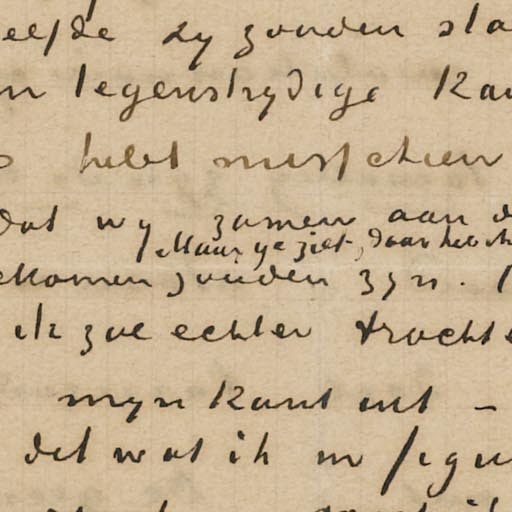 zelfde zy zouden sta
n tegenstrydige Kan
hebt misschien
dat wy zamen aan d
Maar ge ziet, daar heb ik
ekomen zouden zyn.
ik zoe echter trachte
myn Kant uit –
dat wat ik in figu